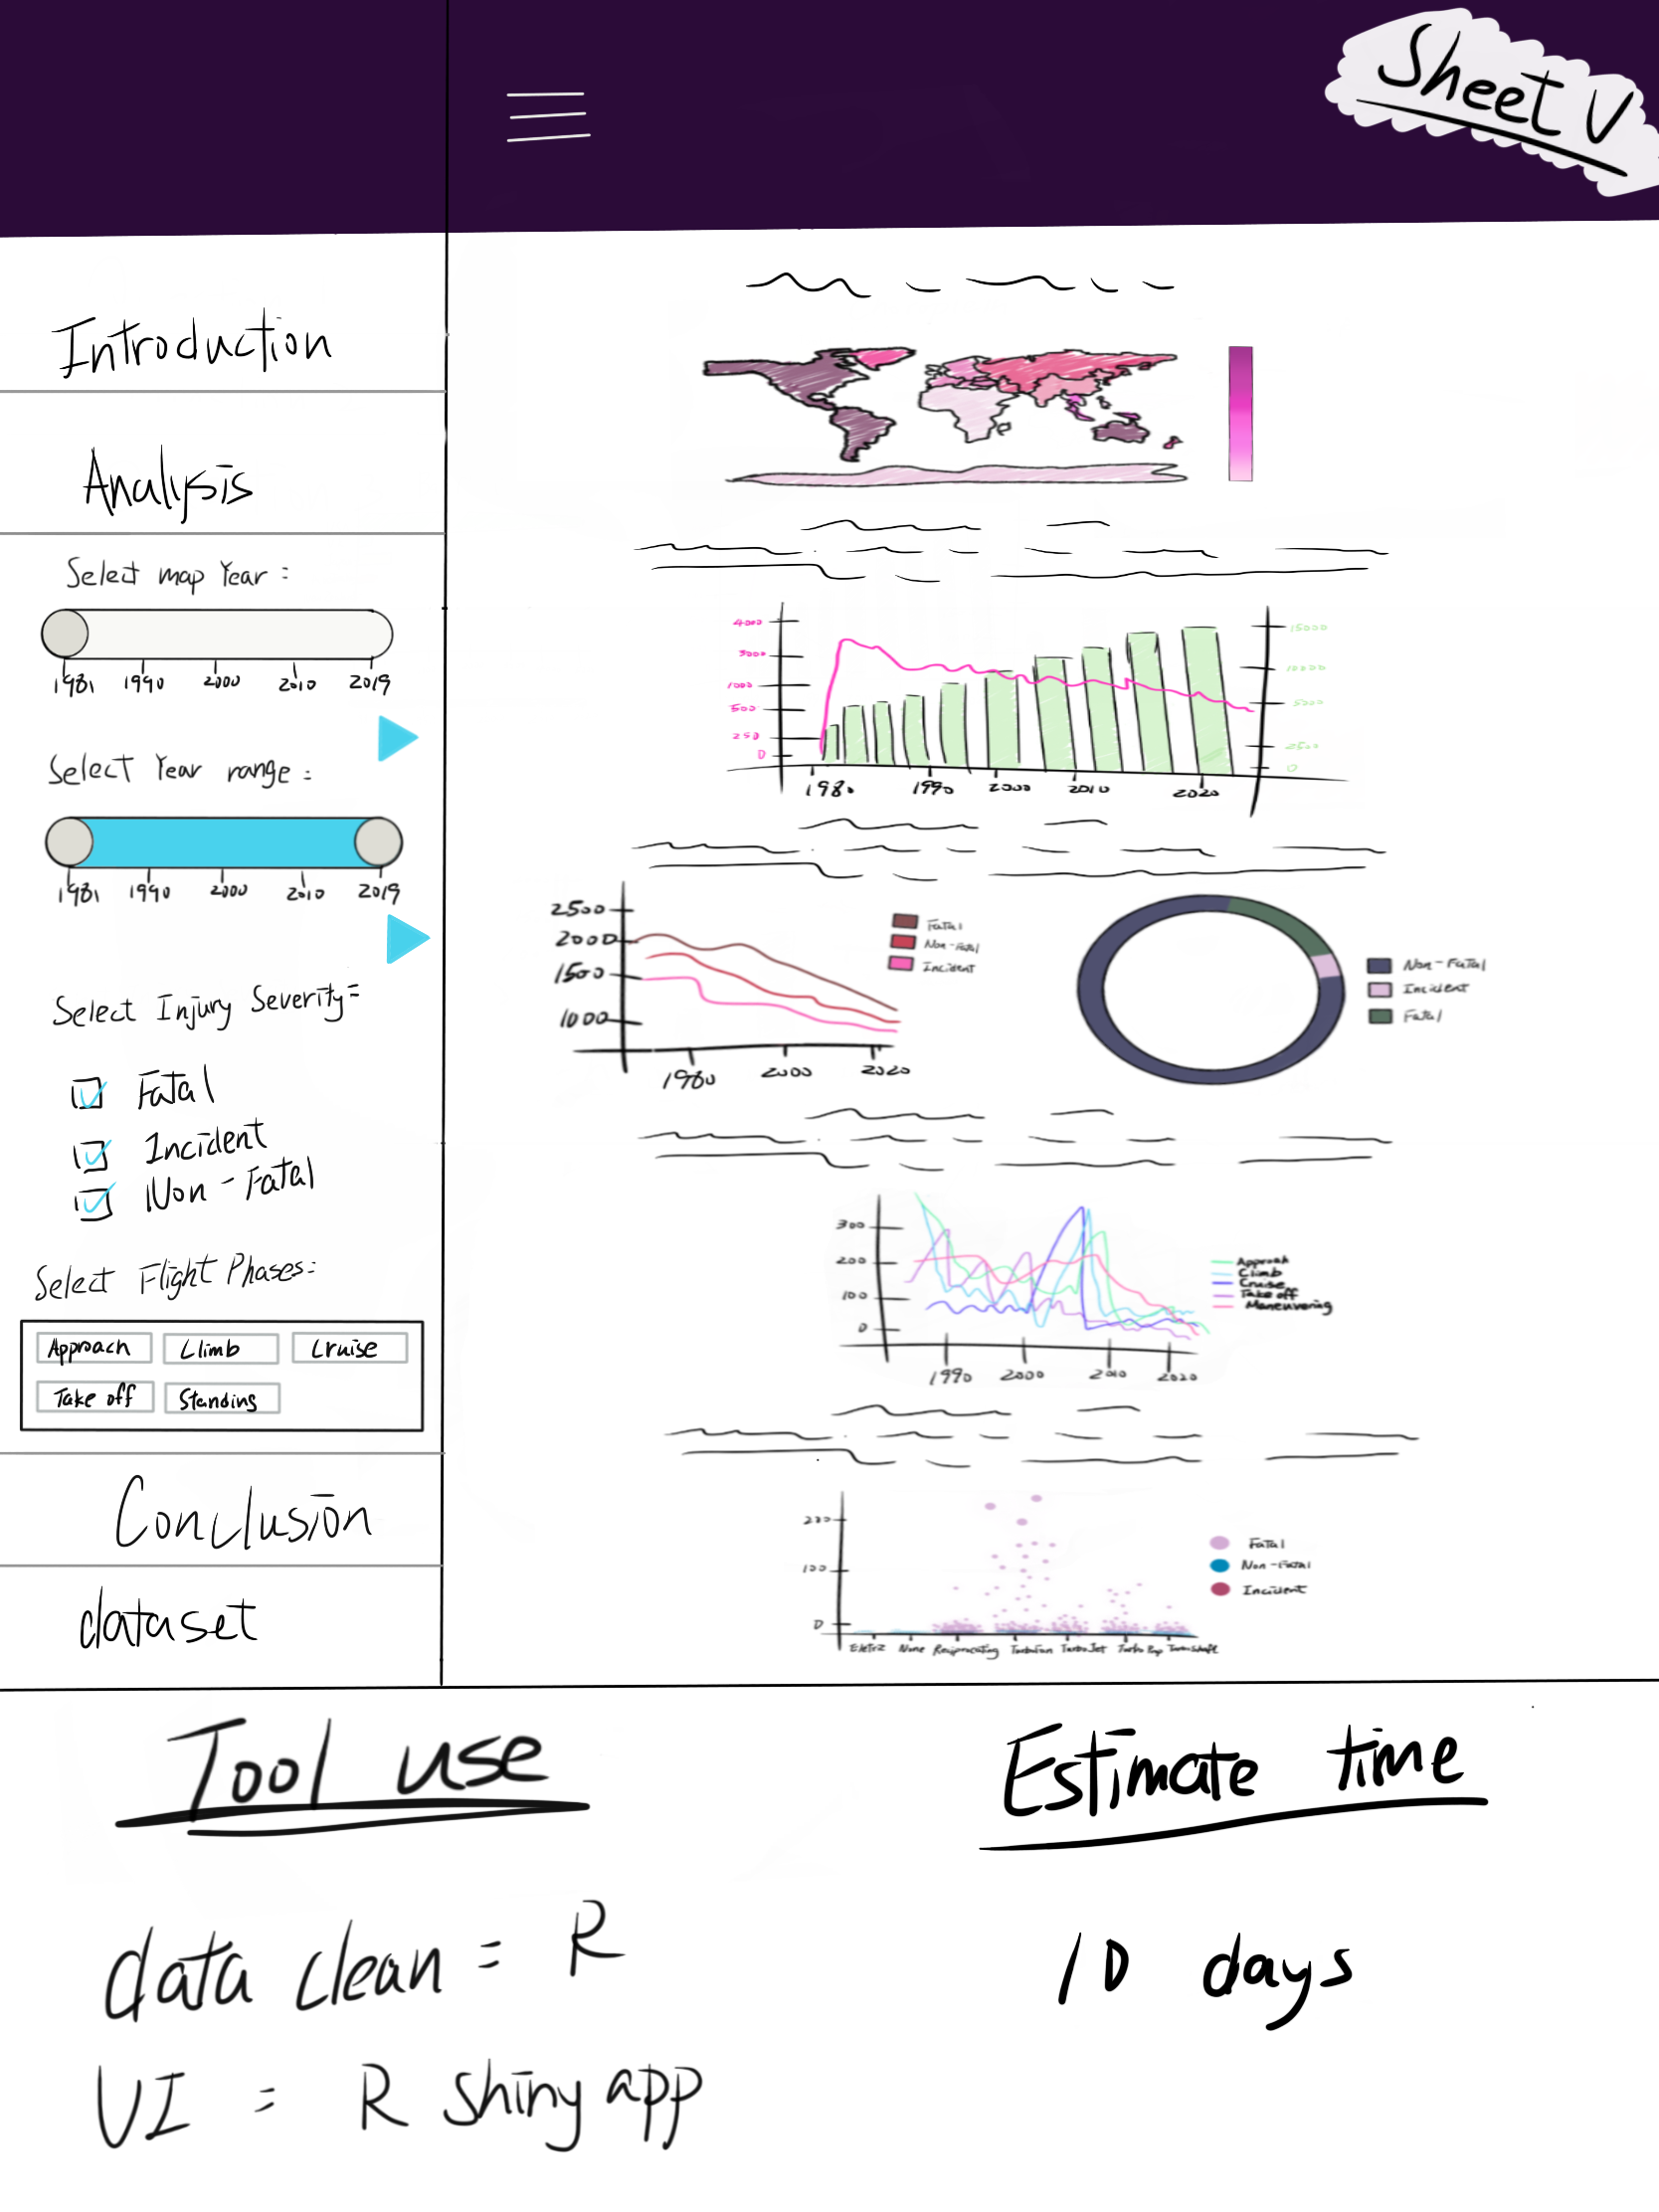 Sheet V
Introduction
Analysis
Select map Year:
1981 1990 2000 2010 2019
Select Year range:
1981 1990 2000 2010 2019
Select Injury Severity:
Fatal
Incident
Non-Fatal
Select Flight Phases:
Approach Climb Cruise
Take off Standing
Conclusion
dataset
4000
3000
1000
500
250
0
15000
10000
5000
2500
0
1980 1990 2000 2010 2020
2500
2000
1500
1000
1980 2000 2020
Fatal
Non-Fatal
Incident
Non-Fatal
Incident
Fatal
300
200
100
0
1990 2000 2010 2020
Approah
Climb
Cruise
Take off
Maneuvering
200
100
0
None Reciprocating Turbofan TurboJet Turbo Pop
Fatal
Non-Fatal
Incident
Tool use
data clean = R
UI = R shiny app
Estimate time
10 days